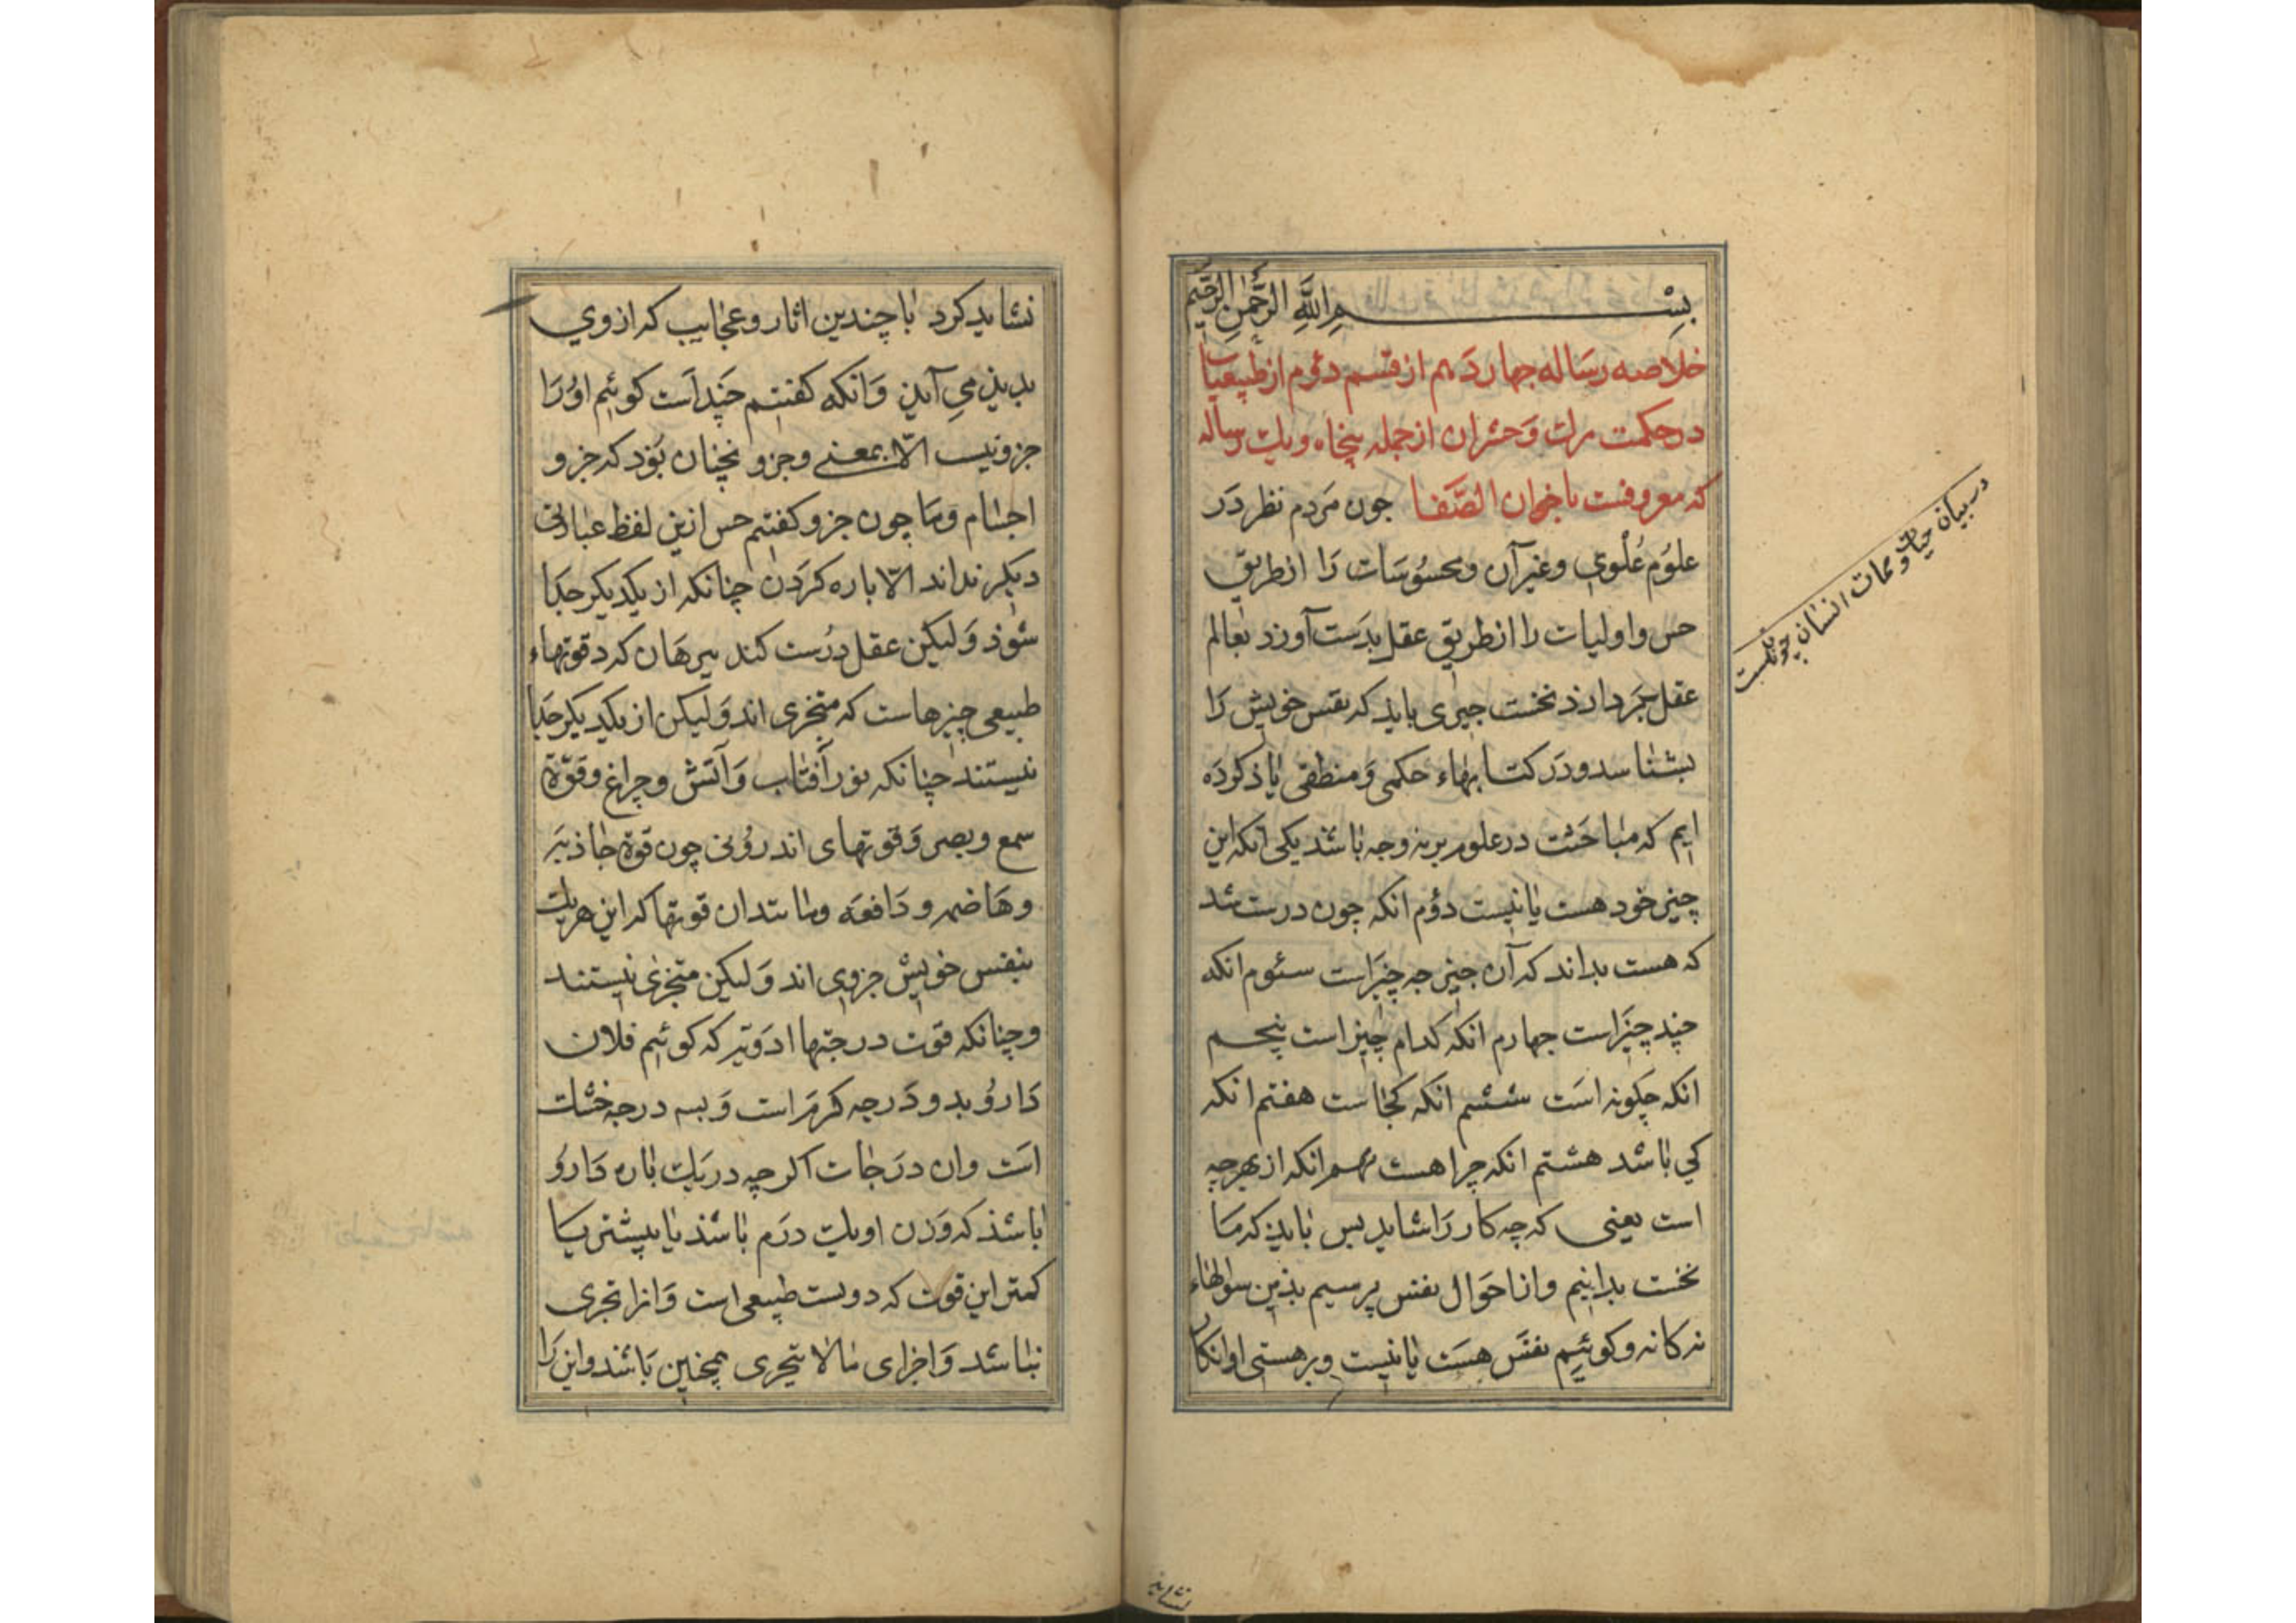 بسم الله الرحمن الرحیم
خلاصه رساله جهاردهم از قسم دوم از طبیعیات
در حکمت مرك و حشران از جمله پنجاه ویك رساله
که معروفست باخوان الصفا جون مردم نظر در
علوم علوی وغیر آن ومحسوسات را از طریق
حس واولیات را از طریق عقل بدست آورد بعالم
عقل بردارد نخست جیزی باید که نفس خویش را
بشناسد ودر کتابهاء حکمی و منطقی یاذ کرده
ایم که مباحثت در علوم بر نه وجه باشد یکی انکه این
چیز خود هست یا نیست دوم انکه جون درست شد
که هست بداند که آن جیز جه چیز است سئوم انکه
چند چیز است جهارم انکه کدام چیز است پنجم
انکه چکونه است ششم انکه کجاست هفتم انکه
کی باشد هشتم انکه چرا هست نهم انکه از بهر چه
است یعنی که چه کار را شاید بس باید که ما
نخست بدانیم واز احوال نفس پرسیم بذین سوالهاء
نه کانه وکوئیم نفس هست یا نیست وبر هستی او انکار
در بیان حیات و ممات انسان چونکست
نشاید
نشاید کرد با چندین اثار وعجایب که از وی
بدیذ می آیذ و انکه کفتیم چند است کوئیم او را
جزو نیست الا بمعنی وجزو نچنان بود که جزو
اجسام وما چون جزو کفتیم حس ازین لفظ عبارتی
دیکر نداند الا باره کردن چنانکه از یکدیکر جدا
شوذ ولیکن عقل درست کند ببرهان که در قوتهاء
طبیعی چیزهاست که متجزی اند ولیکن از یکدیکر جدا
نیستند چنانکه نور آفتاب و آتش و چراغ وقوة
سمع وبصر وقوتهای اندرونی چون قوة جاذبه
وهاضمه و دافعه ومانندان قوتها که این هریك
بنفس خویش جزوی اند ولیکن متجزی نیستند
وچنانکه قوت درجتها ادویه که کوئیم فلان
دارو بدو درجه کرم است و بسه درجه خشك
است وان درجات اکرچه در یك باره دارو
باشذ که وزن او یك درم باشذ یا بیشتر یا
کمتر این قوت که دروست طبیعی است و انرا تجزی
نباشد واجزای مالا یتجزی همچنین باشند واین را